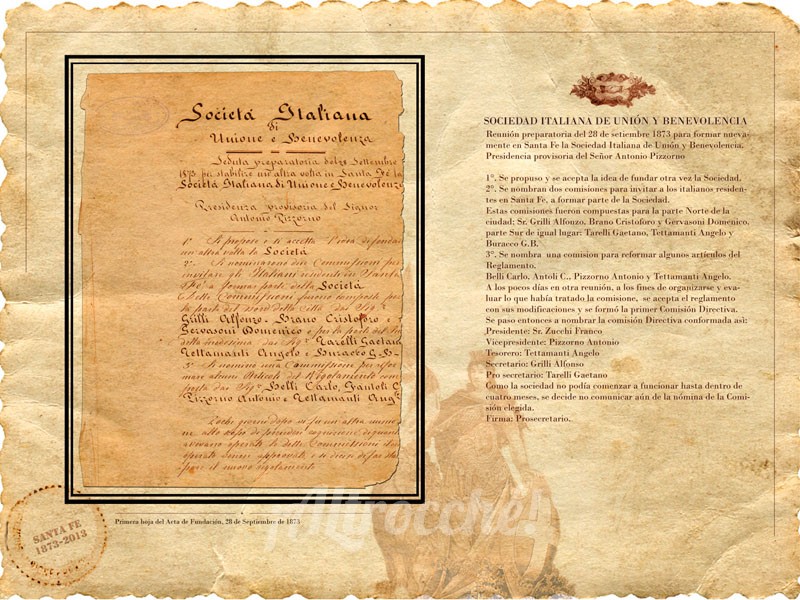 Società Italiana
di
Unione e Benevolenza
Seduta preparatoria del 28 Settembre
1873 per stabilire un'altra volta in Santa Fè la
Società Italiana di Unione e Benevolenza
Presidenza provvisoria del Signor
Antonio Pizzorno
1° Si propose e si accettò l'idea di fondare
un'altra volta la Società
2° Si nominarono due Commissioni per
invitare gli Italiani residenti in Santa
Fè a formar parte della Società
Delle Commissioni furono composte per
la parte del Nord della città dai Sigri
Grilli Alfonzo, Brano Cristoforo e
Gervasoni Domenico e per la parte del
della medesima dai Sigri Tarelli Gaetano
Tettamanti Angelo e Buracco G. B.
3° Si nominò una Commissione per
mare alcuni Articoli del Regolamento com
posta dai Sigri Belli Carlo, Fantoli C
Pizzorno Antonio e Tettamanti Ang
Pochi giorni dopo si fu un'altra
ne allo scopo di
avevano operato le dette Commissioni
operato venne approvato e si decise
il nuovo regolamento
Primera hoja del Acta de Fundación, 28 de Septiembre de 1873
SANTA FE
1873-2013
SOCIEDAD ITALIANA DE UNIÓN Y BENEVOLENCIA
Reunión preparatoria del 28 de setiembre 1873 para formar nueva-
mente en Santa Fe la Sociedad Italiana de Unión y Benevolencia.
Presidencia provisoria del Señor Antonio Pizzorno
1°. Se propuso y se acepta la idea de fundar otra vez la Sociedad.
2°. Se nombran dos comisiones para invitar a los italianos residen-
tes en Santa Fe, a formar parte de la Sociedad.
Estas comisiones fueron compuestas para la parte Norte de la
ciudad; Sr. Grilli Alfonzo, Brano Cristoforo y Gervasoni Domenico,
parte Sur de igual lugar: Tarelli Gaetano, Tettamanti Angelo y
Buracco G.B.
3°. Se nombra una comision para reformar algunos artículos del
Reglamento.
Belli Carlo, Antoli C., Pizzorno Antonio y Tettamanti Angelo.
A los pocos días en otra reunión, a los fines de organizarse y eva-
luar lo que había tratado la comisione, se acepta el reglamento
con sus modificaciones y se formó la primer Comisión Directiva.
Se paso entonces a nombrar la comisión Directiva conformada asi:
Presidente: Sr. Zucchi Franco
Vicepresidente: Pizzorno Antonio
Tesorero: Tettamanti Angelo
Secretario: Grilli Alfonso
Pro secretario: Tarelli Gaetano
Como la sociedad no podía comenzar a funcionar hasta dentro de
cuatro meses, se decide no comunicar aún de la nómina de la Comi-
sión elegida.
Firma: Prosecretario.
¡Altrocché!